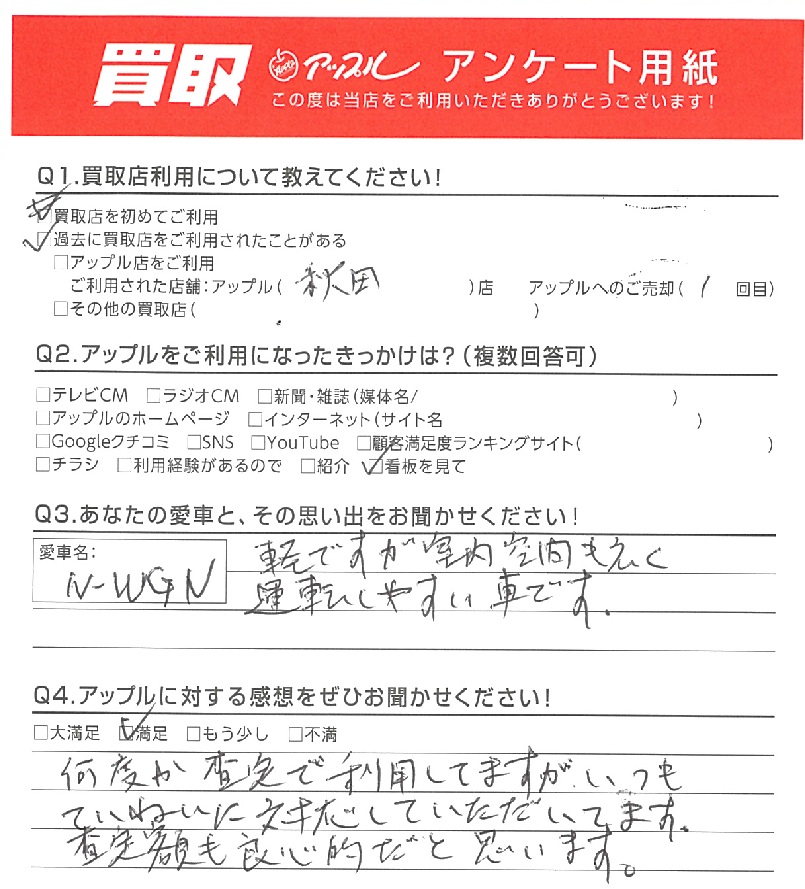 買取 アップル アンケート用紙
この度は当店をご利用いただきありがとうございます！
Q1.買取店利用について教えてください！
□買取店を初めてご利用
□過去に買取店をご利用されたことがある
□アップル店をご利用
ご利用された店舗：アップル（ 秋田 ）店 アップルへのご売却（ 1 回目）
□その他の買取店（ ）
Q2.アップルをご利用になったきっかけは？（複数回答可）
□テレビCM □ラジオCM □新聞・雑誌（媒体名/ ）
□アップルのホームページ □インターネット（サイト名 ）
□Googleクチコミ □SNS □YouTube □顧客満足度ランキングサイト（ ）
□チラシ □利用経験があるので □紹介 ☑看板を見て
Q3.あなたの愛車と、その思い出をお聞かせください！
愛車名：
N-WGN
軽ですが室内空間も広く
運転しやすい車です。
Q4.アップルに対する感想をぜひお聞かせください！
□大満足 ☑満足 □もう少し □不満
何度か査定で利用してますが、いつも
ていねいに対応していただいてます。
査定額も良心的だと思います。